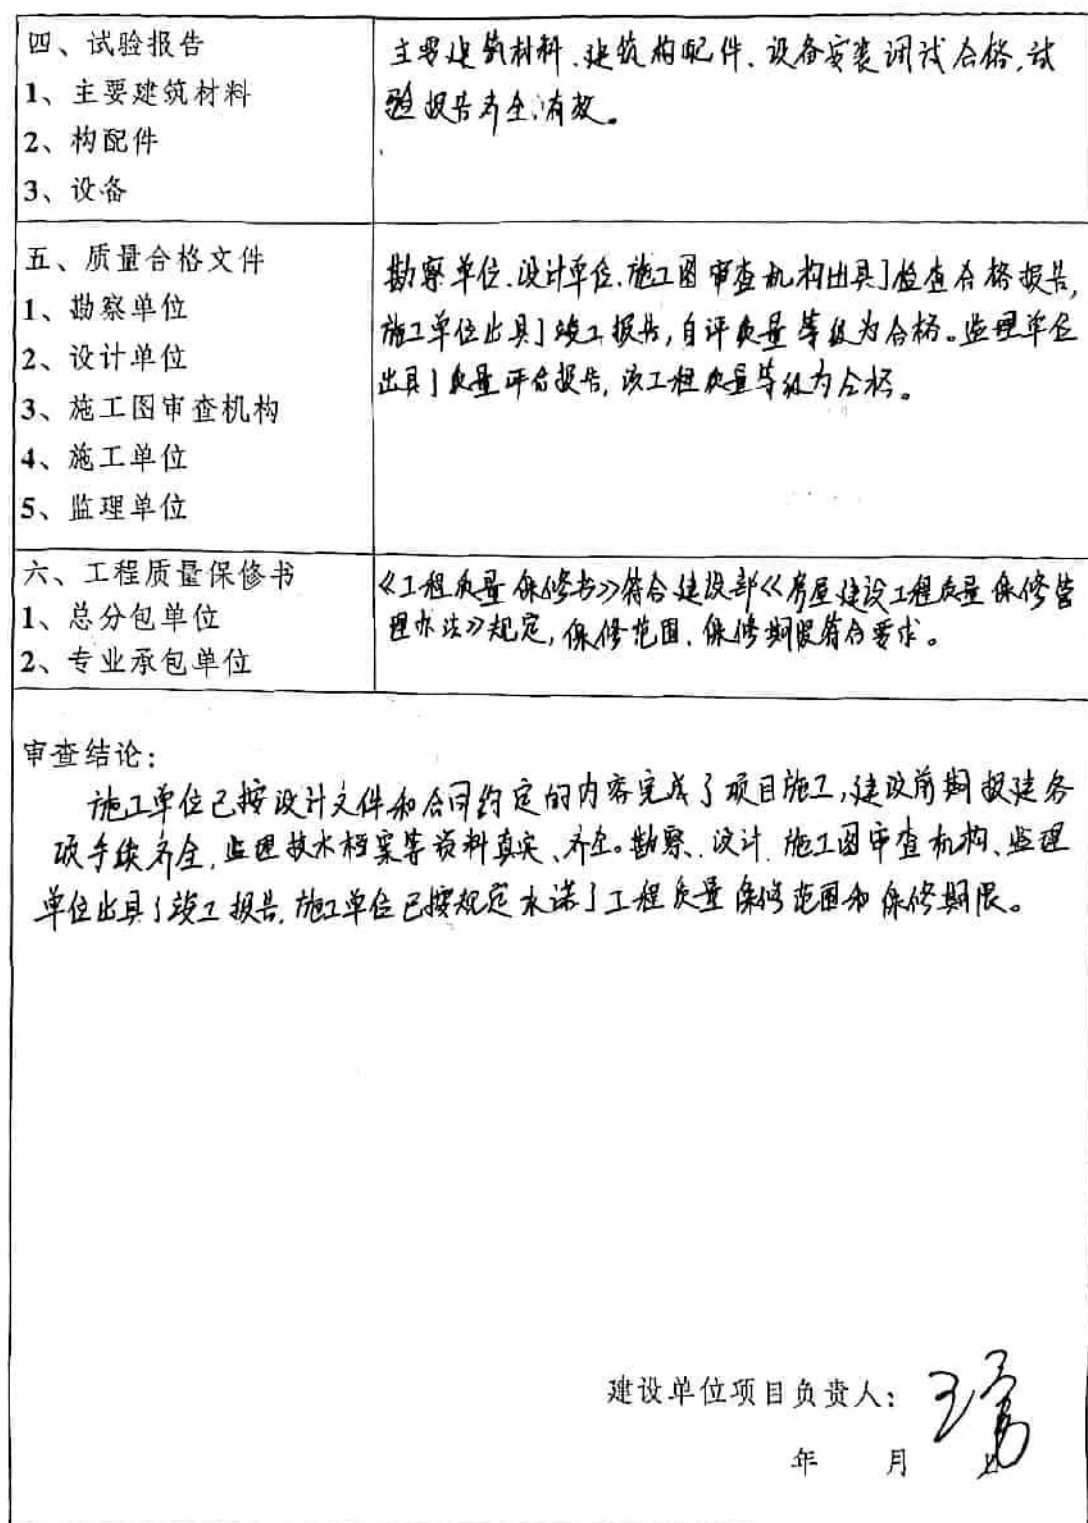 四、试验报告
1、主要建筑材料
2、构配件
3、设备
主要建筑材料、建筑构配件、设备安装调试合格，试
验报告齐全，有效。
五、质量合格文件
1、勘察单位
2、设计单位
3、施工图审查机构
4、施工单位
5、监理单位
勘察单位、设计单位、施工图审查机构出具了检查合格报告，
施工单位出具了竣工报告，自评质量等级为合格。监理单位
出具了质量评估报告，该工程质量等级为合格。
六、工程质量保修书
1、总分包单位
2、专业承包单位
《工程质量保修书》符合建设部《房屋建设工程质量保修管
理办法》规定，保修范围、保修期限符合要求。
审查结论：
施工单位已按设计文件和合同约定的内容完成了项目施工，建设前期报建各
项手续齐全，监理技术档案等资料真实、齐全。勘察、设计、施工图审查机构、监理
单位出具了竣工报告，施工单位已按规定承诺了工程质量保修范围和保修期限。
建设单位项目负责人：
年 月 日